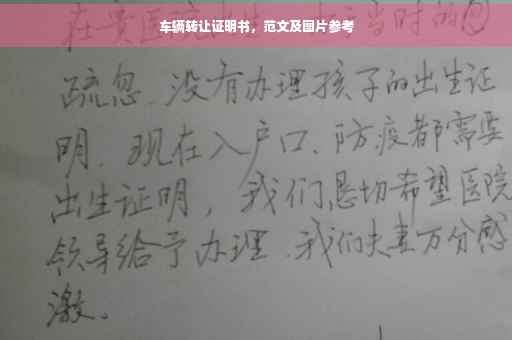 车辆转让证明书，范文及图片参考
在贵医院出生，由于当时的
疏忽.没有办理孩子的出生证
明.现在入户口、防疫都需要
出生证明，我们恳切希望医院
领导给予办理.我们夫妻万分感
激。